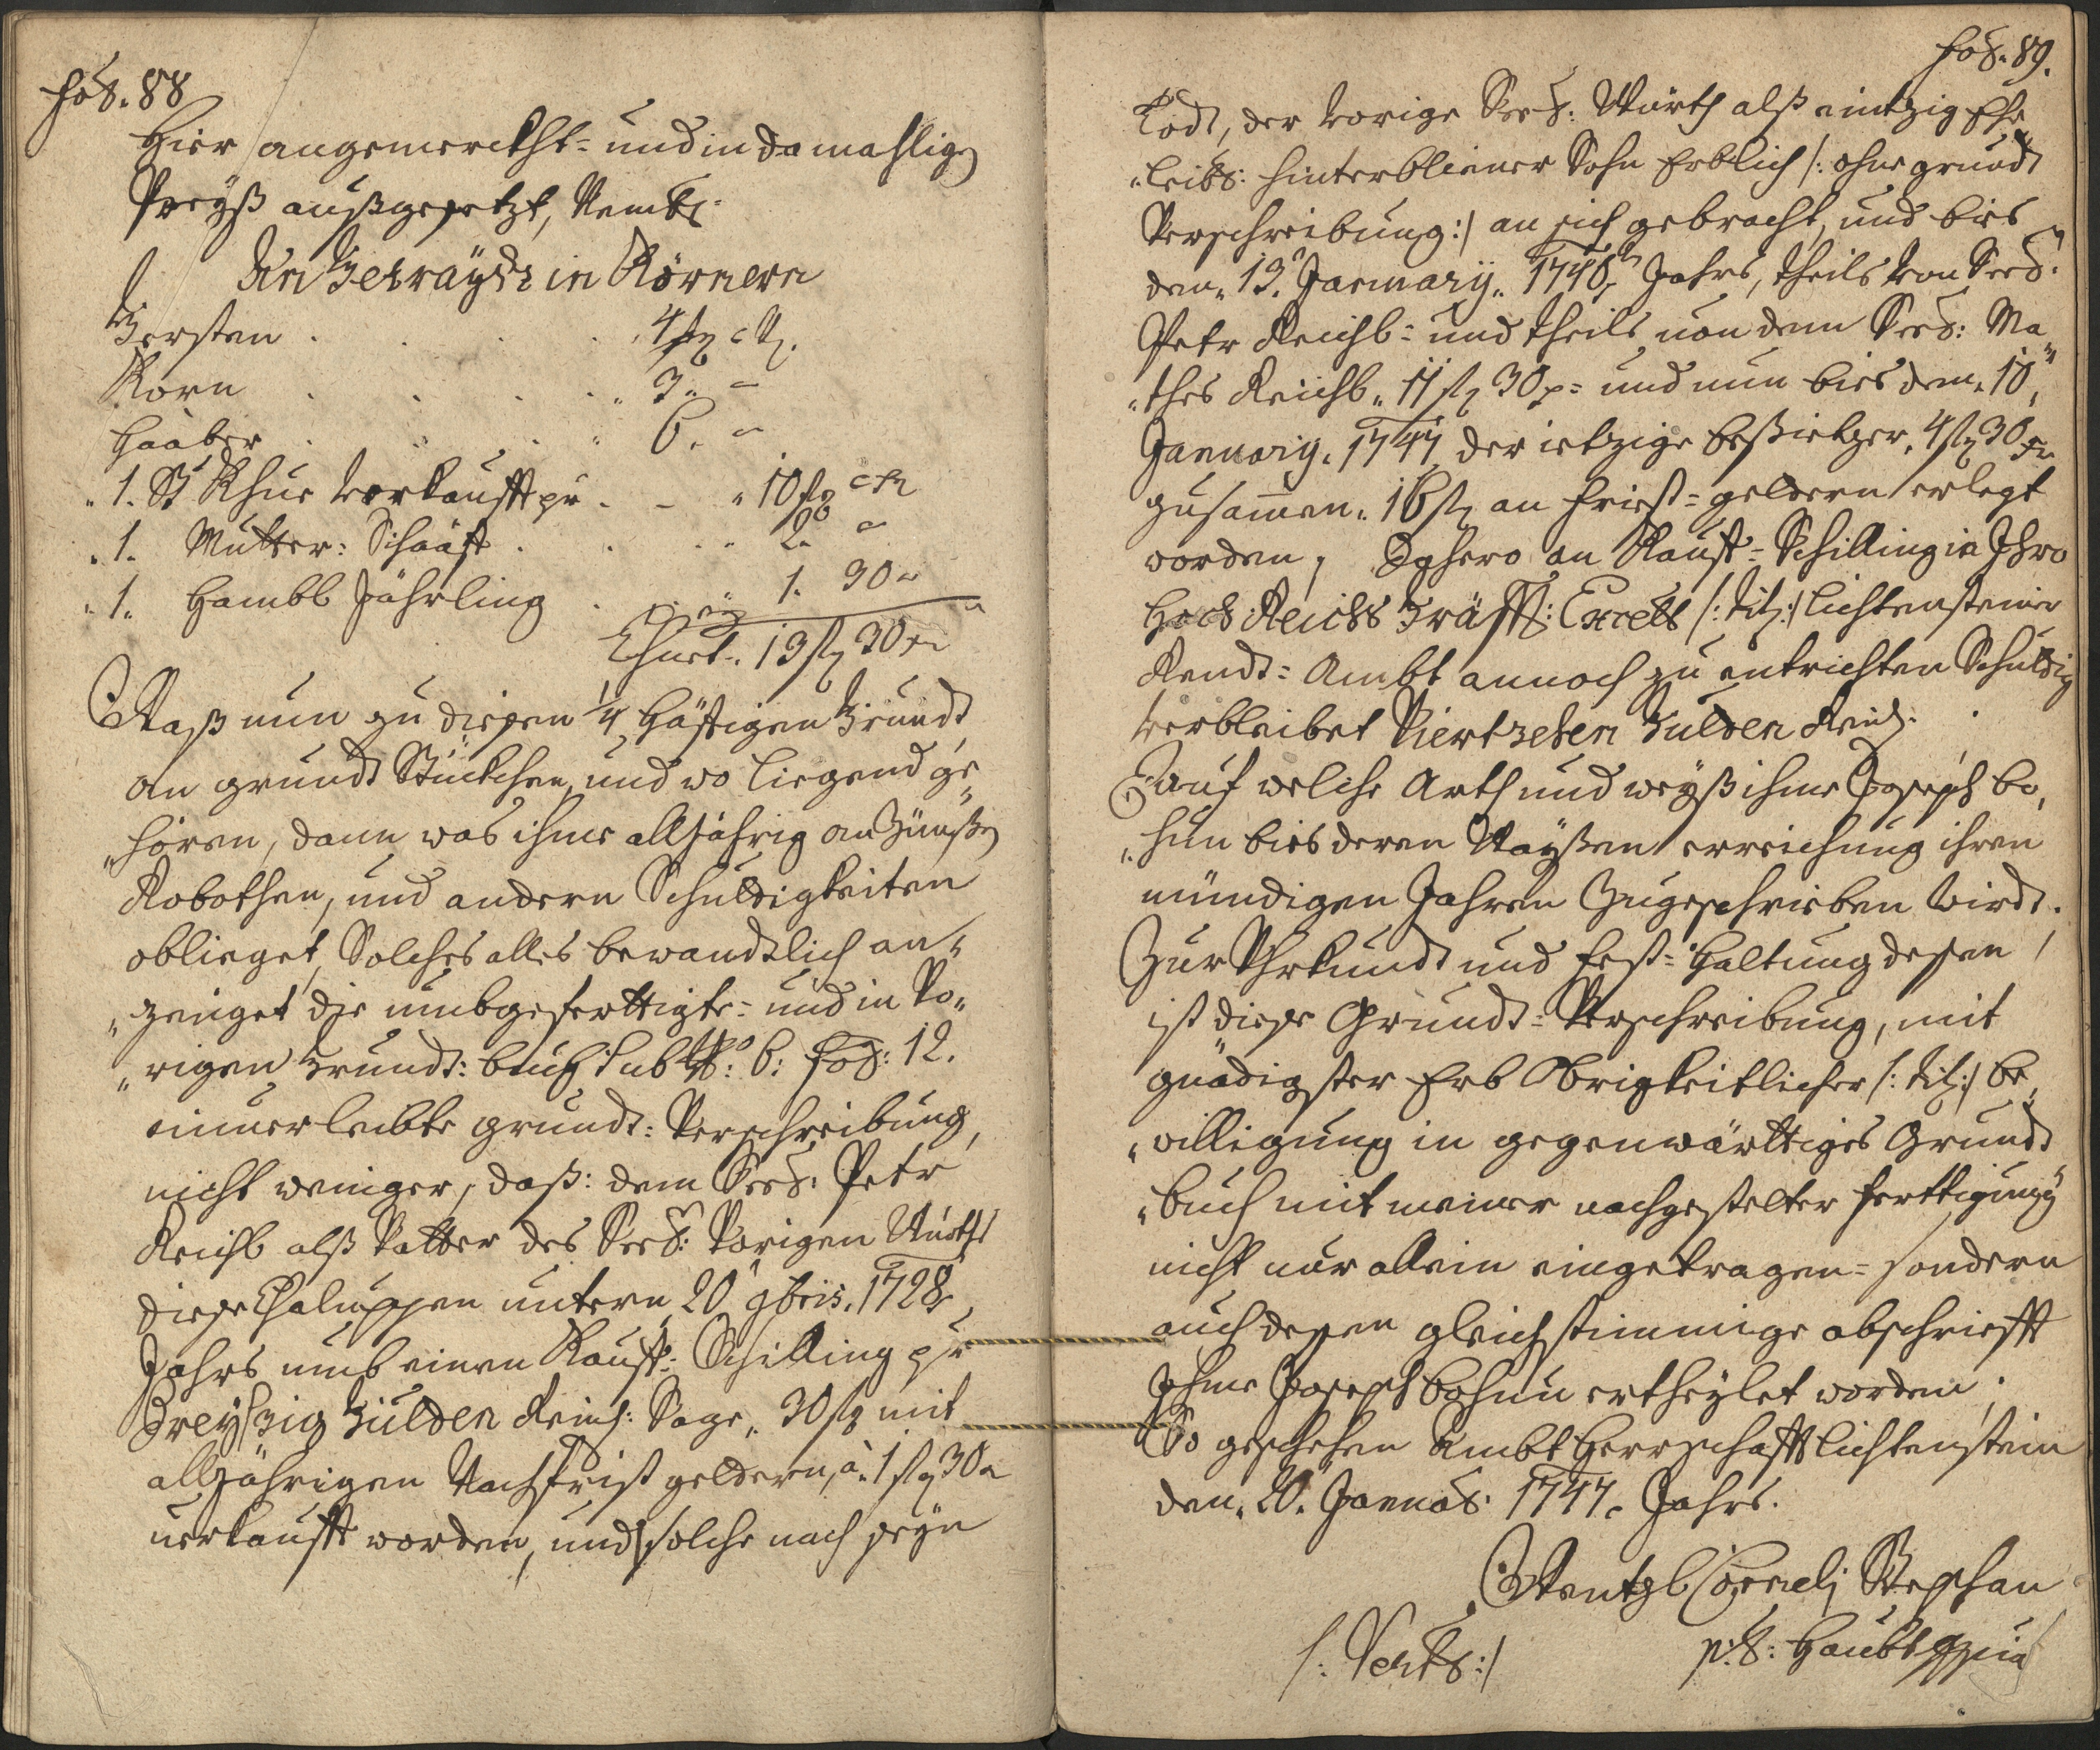 fol. 88
Hier angemerckht- und in damahlig
Preyß außgesetzt, Nembl:
An Getraÿdt in Körnern
Gersten . . . . 4 str
Korn . . . . „ 3 „ –
Haaber . . . . „ 6 „ –
„ 1. St Khue verkaufft pr . – „ 10 f
„ 1. Mutter: Schaaff . . . „ 2 „
„ 1. Hambl Jährling . . 1. 30 „
13 f 30 xr
Waß nun zu diesen 1/4 Höffigen Grundt
an grundt Stückhen, und wo liegend ge„
„hören, dann was ihme alljährig an Zünßen
Robothen, und andern Schuldigkeiten
oblieget, Solches alles bewandtlich an„
„zeiget die umbgeferttigte- und in Vo„
„rigen Grundt: buch sub Nro: 6: fol: 12.
einverleibte grundt: Verschreibung,
nicht weniger, daß: dem Seel: Petr
Reichl alß Vatter des Seel: Vorigen Würths
diese Chaluppen untern 20 9bris. 1728
Jahrs umb einen Kauff: Schilling pr
Dreyßzig Gulden Reinl: Sage „ 30 f mit
alljährigen Nachfrist geldern, à „ 1 f 30
verkaufft worden, und solche nach seyn
fol. 89.
Todt, der Vorige Seel: Würth alß eintzig Ehe
„leibl: hinterbliener Sohn Erblich /: ohne grundt
Verschreibung :/ an sich gebracht, und bies
den „ 13. January „ 1746 Jahrs, theils von Seel:
Petr Reichl- und theils von dem Seel: Ma„
„thes Reichl „ 11 f 30 x- und nun bies dem „ 10
January „ 1747 der ietzige besietzer „ 4 f 30 xr
zusamen „ 16 f an Friest-geldern erlegt
worden, Dahero an Kauff-Schilling in Ihro
Hoch Reichs Gräffl: Excell /: titl :/ Lichtensteiner
Rendt-Ambt annoch zu entrichten Schuldig
verbleibet Viertzehen Gulden Reinl.
Auf welche Arth und weyß ihme Joseph bo„
„hun bies deren Waÿßen erreichung ihren
mündigen Jahren Zugeschrieben wirdt.
Zur Uhrkundt und Fest-Haltung dessen,
ist diese Grundt-Verschreibung, mit
gnädigster Erb Obrigkeitlicher /: titl :/ be„
„willigung in gegenwärttiges Grundt
„buch mit meiner nachgestelter ferttigung
nicht nur allein eingetragen- sondern
auch dessen gleichstimmige abschriefft
Ihme Joseph bohun ertheylet worden;
So geschehen Ambt Herrschafft Lichtenstein
den „ 20. Januar: 1747. Jahrs.
Wentzl Cornelj Stephan
p:t: Haubt